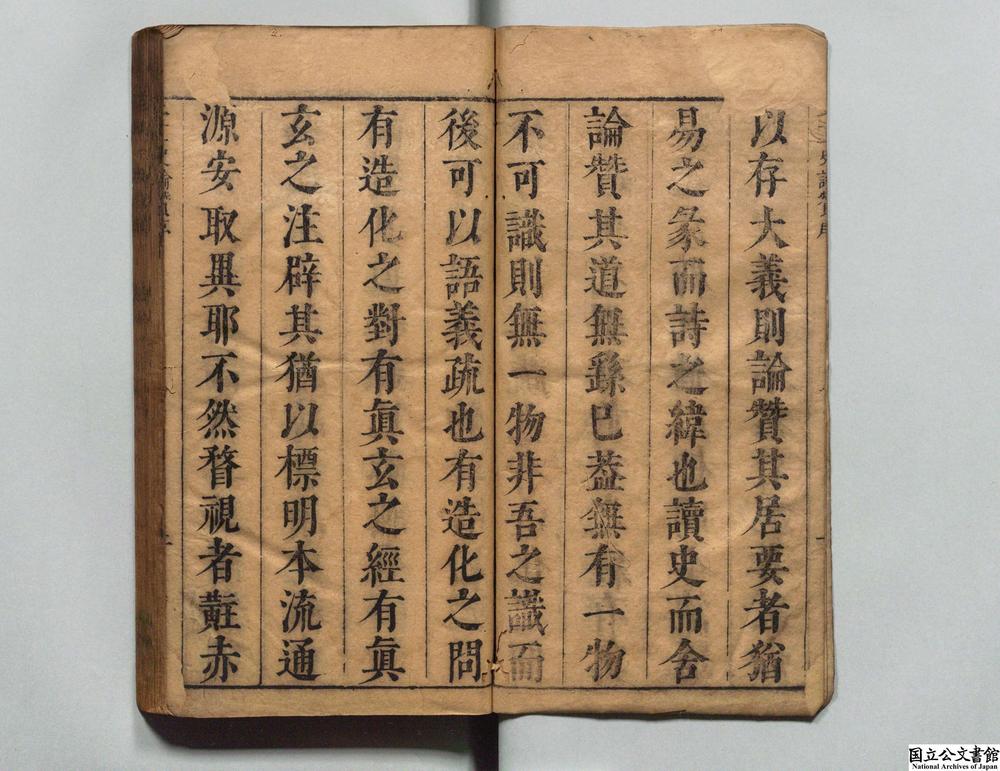 以存大義則論贊其居要者猶
易之彖而詩之緯也讀史而舍
論贊其道無繇已葢無有一物
不可識則無一物非吾之識而
後可以語義疏也有造化之問
有造化之對有眞玄之經有眞
玄之注辟其猶以標明本流通
源安取異耶不然瞀視者黈赤
国立公文書館
National Archives of Japan